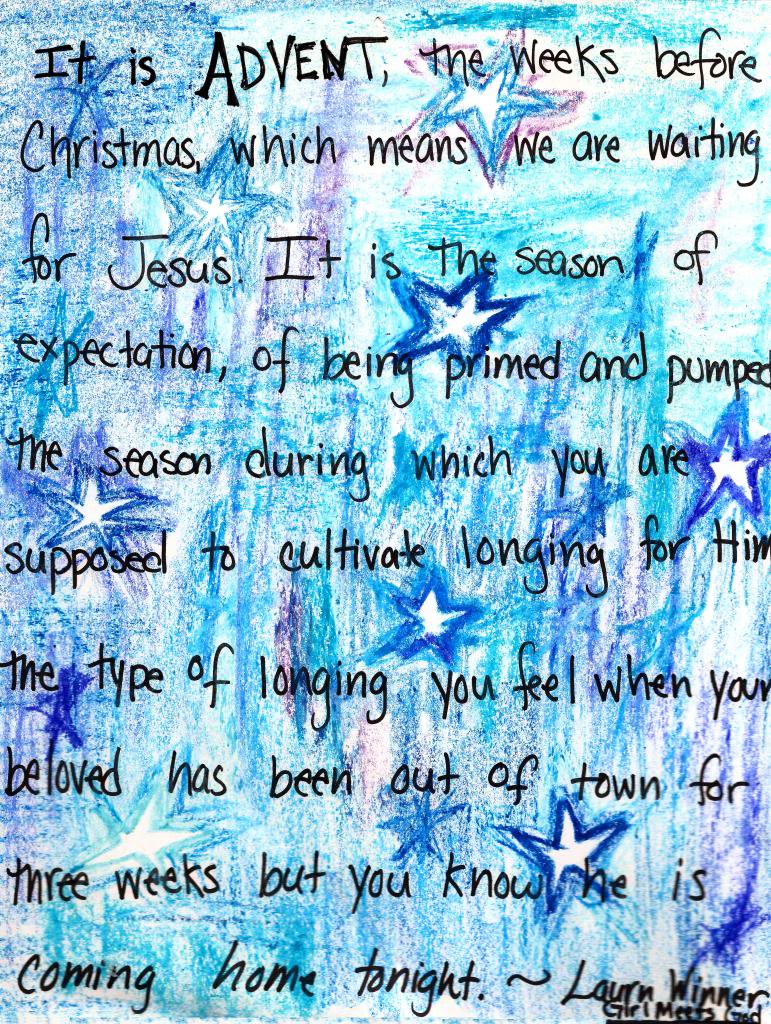 It is ADVENT, the weeks before
Christmas, which means we are waiting
for Jesus. It is the season of
expectation, of being primed and pumped
the season during which you are
supposed to cultivate longing for Him
the type of longing you feel when your
beloved has been out of town for
three weeks but you know he is
coming home tonight. ~ Laurn Winner
Girl Meets God